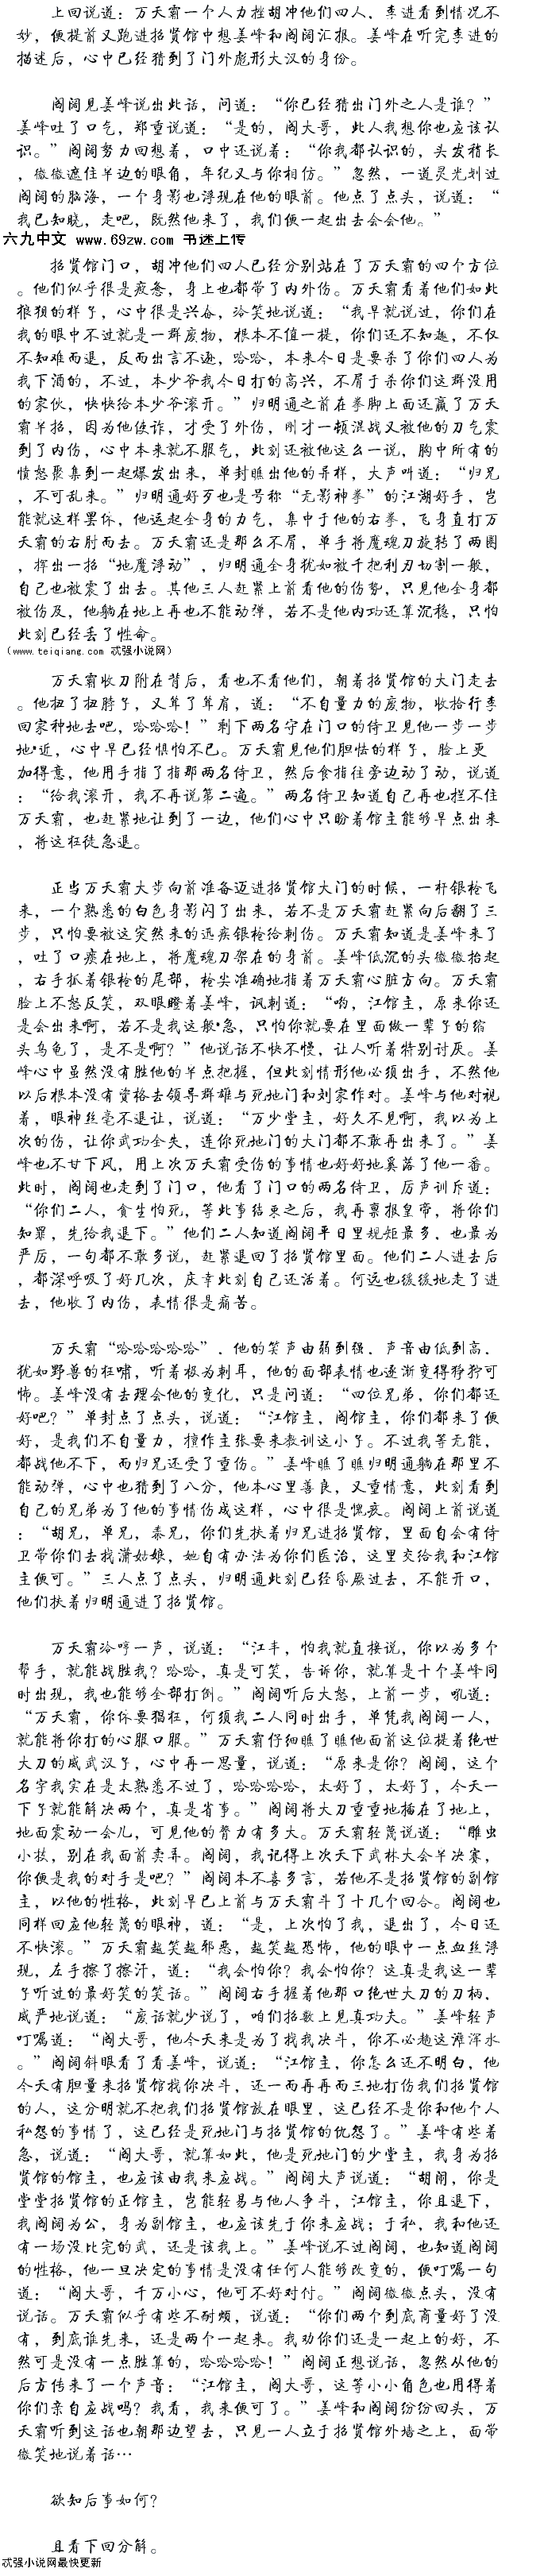 上回说道：万天霸一个人力挫胡冲他们四人，李进看到情况不
妙，便提前又跑进招贤馆中想姜峰和阎阔汇报。姜峰在听完李进的
描述后，心中已经猜到了门外彪形大汉的身份。
阎阔见姜峰说出此话，问道：“你已经猜出门外之人是谁？”
姜峰吐了口气，郑重说道：“是的，阎大哥，此人我想你也应该认
识。”阎阔努力回想着，口中还说着：“你我都认识的，头发稍长，
微微遮住半边的眼角，年纪又与你相仿。”忽然，一道灵光划过
阎阔的脑海，一个身影也浮现在他的眼前。他点了点头，说道：“
我已知晓，走吧，既然他来了，我们便一起出去会会他。”
六九中文 www.69zw.com 书迷上传
招贤馆门口，胡冲他们四人已经分别站在了万天霸的四个方位
。他们似乎很是疲惫，身上也都带了内外伤。万天霸看着他们如此
狼狈的样子，心中很是兴奋，冷笑地说道：“我早就说过，你们在
我的眼中不过就是一群废物，根本不值一提，你们还不知趣，不仅
不知难而退，反而出言不逊，哈哈，本来今日是要杀了你们四人为
我下酒的，不过，本少爷我今日打的高兴，不屑于杀你们这群没用
的家伙，快快给本少爷滚开。”归明通之前在拳脚上面还赢了万天
霸半招，因为他使诈，才受了外伤，刚才一顿混战又被他的刀气震
到了内伤，心中本来就不服气，此刻还被他这么一说，胸中所有的
愤怒聚集到一起爆发出来，单封瞧出他的异样，大声叫道：“归兄
，不可乱来。”归明通好歹也是号称“无影神拳”的江湖好手，岂
能就这样罢休，他运起全身的力气，集中于他的右拳，飞身直打万
天霸的右肘而去。万天霸还是那么不屑，单手将魔魂刀旋转了两圈
，挥出一招“地魔浮动”，归明通全身犹如被千把利刃切割一般，
自己也被震了出去。其他三人赶紧上前看他的伤势，只见他全身都
被伤及，他躺在地上再也不能动弹，若不是他内功还算沉稳，只怕
此刻已经丢了性命。
（www.teiqiang.com 忒强小说网）
万天霸收刀附在背后，看也不看他们，朝着招贤馆的大门走去
。他扭了扭脖子，又耸了耸肩，道：“不自量力的废物，收拾行李
回家种地去吧，哈哈哈！”剩下两名守在门口的侍卫见他一步一步
地•近，心中早已经惧怕不已。万天霸见他们胆怯的样子，脸上更
加得意，他用手指了指那两名侍卫，然后食指往旁边动了动，说道
：“给我滚开，我不再说第二遍。”两名侍卫知道自己再也拦不住
万天霸，也赶紧地让到了一边，他们心中只盼着馆主能够早点出来
，将这狂徒急退。
正当万天霸大步向前准备迈进招贤馆大门的时候，一杆银枪飞
来，一个熟悉的白色身影闪了出来，若不是万天霸赶紧向后翻了三
步，只怕要被这突然来的迅疾银枪给刺伤。万天霸知道是姜峰来了
，吐了口痰在地上，将魔魂刀架在的身前。姜峰低沉的头微微抬起
，右手抓着银枪的尾部，枪尖准确地指着万天霸心脏方向。万天霸
脸上不怒反笑，双眼瞪着姜峰，讽刺道：“哟，江馆主，原来你还
是会出来啊，若不是我这般•急，只怕你就要在里面做一辈子的缩
头乌龟了，是不是啊？”他说话不快不慢，让人听着特别讨厌。姜
峰心中虽然没有胜他的半点把握，但此刻情形他必须出手，不然他
以后根本没有资格去领导群雄与死地门和刘家作对。姜峰与他对视
着，眼神丝毫不退让，说道：“万少堂主，好久不见啊，我以为上
次的伤，让你武功全失，连你死地门的大门都不敢再出来了。”姜
峰也不甘下风，用上次万天霸受伤的事情也好好地奚落了他一番。
此时，阎阔也走到了门口，他看了门口的两名侍卫，厉声训斥道：
“你们二人，贪生怕死，等此事结束之后，我再禀报皇帝，将你们
知罪，先给我退下。”他们二人知道阎阔平日里规矩最多，也最为
严厉，一句都不敢多说，赶紧退回了招贤馆里面。他们二人进去后
，都深呼吸了好几次，庆幸此刻自己还活着。何远也缓缓地走了进
去，他收了内伤，表情很是痛苦。
万天霸“哈哈哈哈哈”，他的笑声由弱到强，声音由低到高，
犹如野兽的狂啸，听着极为刺耳，他的面部表情也逐渐变得狰狞可
怖。姜峰没有去理会他的变化，只是问道：“四位兄弟，你们都还
好吧？”单封点了点头，说道：“江馆主，阎馆主，你们都来了便
好，是我们不自量力，擅作主张要来教训这小子。不过我等无能，
都战他不下，而归兄还受了重伤。”姜峰瞧了瞧归明通躺在那里不
能动弹，心中也猜到了八分，他本心里善良，又重情意，此刻看到
自己的兄弟为了他的事情伤成这样，心中很是愧疚。阎阔上前说道
：“胡兄，单兄，秦兄，你们先扶着归兄进招贤馆，里面自会有侍
卫带你们去找潇姑娘，她自有办法为你们医治，这里交给我和江馆
主便可。”三人点了点头，归明通此刻已经昏厥过去，不能开口，
他们扶着归明通进了招贤馆。
万天霸冷哼一声，说道：“江丰，怕我就直接说，你以为多个
帮手，就能战胜我？哈哈，真是可笑，告诉你，就算是十个姜峰同
时出现，我也能够全部打倒。”阎阔听后大怒，上前一步，吼道：
“万天霸，你休要猖狂，何须我二人同时出手，单凭我阎阔一人，
就能将你打的心服口服。”万天霸仔细瞧了瞧他面前这位提着绝世
大刀的威武汉子，心中再一思量，说道：“原来是你？阎阔，这个
名字我实在是太熟悉不过了，哈哈哈哈，太好了，太好了，今天一
下子就能解决两个，真是省事。”阎阔将大刀重重地插在了地上，
地面震动一会儿，可见他的臂力有多大。万天霸轻蔑说道：“雕虫
小技，别在我面前卖弄。阎阔，我记得上次天下武林大会半决赛，
你便是我的对手是吧？”阎阔本不喜多言，若他不是招贤馆的副馆
主，以他的性格，此刻早已上前与万天霸斗了十几个回合。阎阔也
同样回应他轻蔑的眼神，道：“是，上次怕了我，退出了，今日还
不快滚。”万天霸越笑越邪恶，越笑越恐怖，他的眼中一点血丝浮
现，左手擦了擦汗，道：“我会怕你？我会怕你？这真是我这一辈
子听过的最好笑的笑话。”阎阔右手握着他那口绝世大刀的刀柄，
威严地说道：“废话就少说了，咱们招数上见真功夫。”姜峰轻声
叮嘱道：“阎大哥，他今天来是为了找我决斗，你不必趟这滩浑水
。”阎阔斜眼看了看姜峰，说道：“江馆主，你怎么还不明白，他
今天有胆量来招贤馆找你决斗，还一而再再而三地打伤我们招贤馆
的人，这分明就不把我们招贤馆放在眼里，这已经不是你和他个人
私怨的事情了，这已经是死地门与招贤馆的仇怨了。”姜峰有些着
急，说道：“阎大哥，就算如此，他是死地门的少堂主，我身为招
贤馆的馆主，也应该由我来应战。”阎阔大声说道：“胡闹，你是
堂堂招贤馆的正馆主，岂能轻易与他人争斗，江馆主，你且退下，
我阎阔为公，身为副馆主，也应该先于你来应战；于私，我和他还
有一场没比完的武，还是该我上。”姜峰说不过阎阔，也知道阎阔
的性格，他一旦决定的事情是没有任何人能够改变的，便叮嘱一句
道：“阎大哥，千万小心，他可不好对付。”阎阔微微点头，没有
说话。万天霸似乎有些不耐烦，说道：“你们两个到底商量好了没
有，到底谁先来，还是两个一起来。我劝你们还是一起上的好，不
然可是没有一点胜算的，哈哈哈哈！”阎阔正想说话，忽然从他的
后方传来了一个声音：“江馆主，阎大哥，这等小小角色也用得着
你们亲自应战吗？我看，我来便可了。”姜峰和阎阔纷纷回头，万
天霸听到这话也朝那边望去，只见一人立于招贤馆外墙之上，面带
微笑地说着话…
欲知后事如何？
且看下回分解。
忒强小说网最快更新